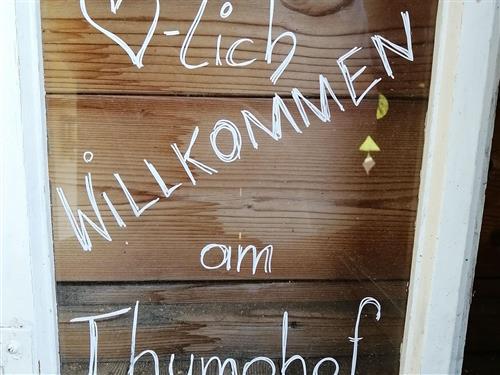 ♡-lich
WILLKOMMEN
am
Thumohof